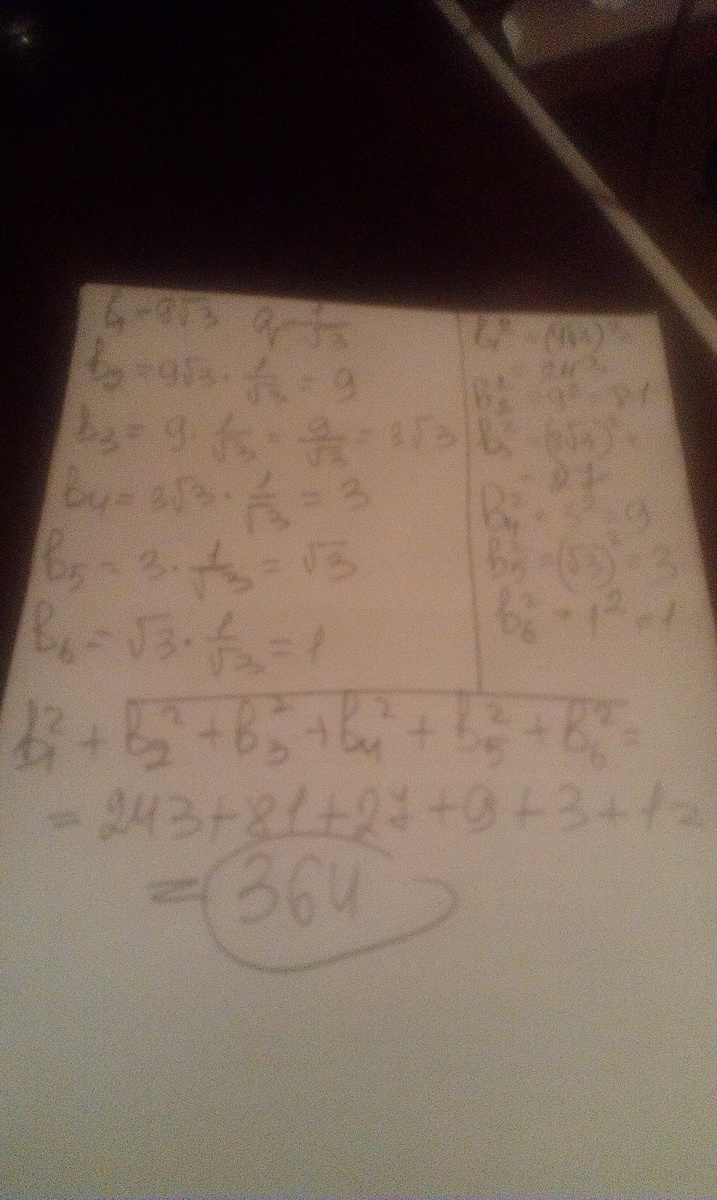 b₁ = 9√3 q = 1/√3
b₂ = 9√3 · 1/√3 = 9
b₃ = 9 · 1/√3 = 9/√3 = 3√3
b₄ = 3√3 · 1/√3 = 3
b₅ = 3 · 1/√3 = √3
b₆ = √3 · 1/√3 = 1
b₁² = (9√3)² =
= 243
b₂² = 9² = 81
b₃² = (3√3)² =
= 27
b₄² = 3² = 9
b₅² = (√3)² = 3
b₆² = 1² = 1
b₁² + b₂² + b₃² + b₄² + b₅² + b₆² =
= 243 + 81 + 27 + 9 + 3 + 1 =
= 364